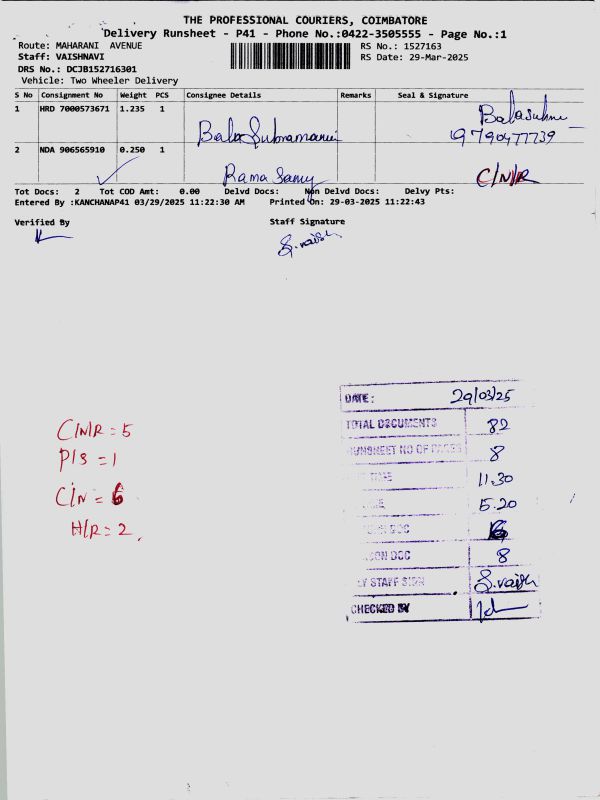 THE PROFESSIONAL COURIERS, COIMBATORE
Delivery Runsheet - P41 - Phone No.:0422-3505555 - Page No.:1
Route: MAHARANI AVENUE
RS No.: 1527163
Staff: VAISHNAVI
RS Date: 29-Mar-2025
DRS No.: DCJB152716301
Vehicle: Two Wheeler Delivery
S No Consignment No Weight PCS Consignee Details Remarks Seal & Signature
1 HRD 7000573671 1.235 1 Bala Subramani Balasubra
9790477739
2 NDA 906565910 0.250 1 Rama Samy C/N/R
Tot Docs: 2 Tot COD Amt: 0.00 Delvd Docs: Non Delvd Docs: Delvy Pts:
Entered By :KANCHANAP41 03/29/2025 11:22:30 AM Printed On: 29-03-2025 11:22:43
Verified By Staff Signature
S.vaish
DATE: 29/03/25
TOTAL DOCUMENTS 82
RUNSHEET NO OF PAGES 8
TIME 11.30
5.20
DOC 6
DOC 8
STAFF SIGN S.vaish
CHECKED BY
C/N/R = 5
P/S = 1
C/N = 6
H/R = 2